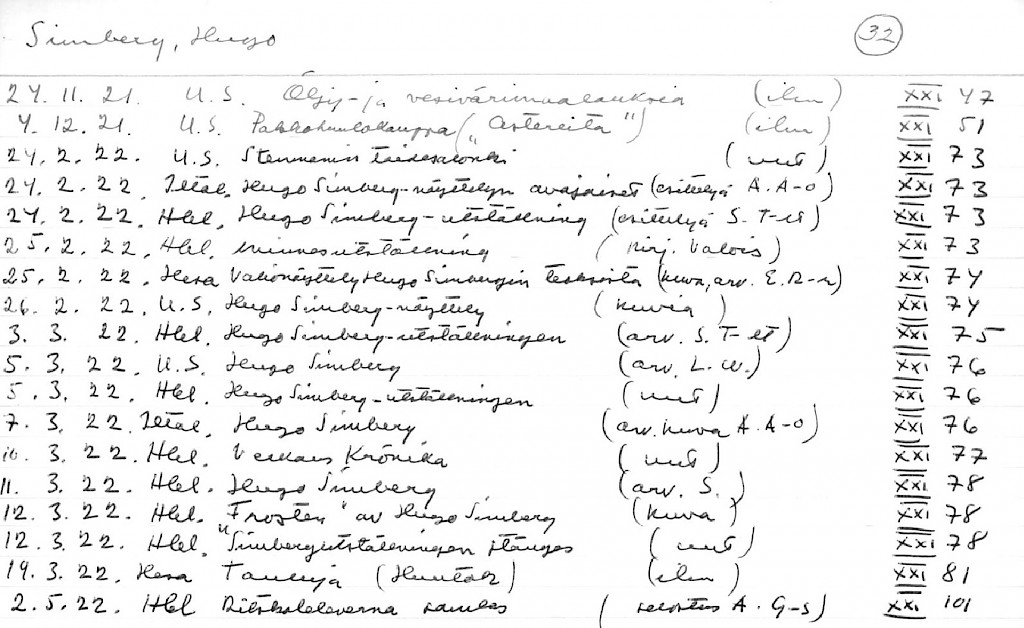 Simberg, Hugo 32
24. 11. 21. U.S. Öljy- ja vesivärimaalauksia (ilm) XXI 47
4. 12. 21. U.S. Pakkohuutokauppa („Astereita") (ilm) XXI 51
24. 2. 22. U.S. Stenmanin taidesalonki (uut) XXI 73
24. 2. 22. Iltal. Hugo Simberg-näyttelyn avajaiset (esittelyä A. A-o) XXI 73
24. 2. 22. Hbl. Hugo Simberg-utställning (esittelyä S. T-lt) XXI 73
25. 2. 22. Hbl. minnesutställning (kirj. Valois) XXI 73
25. 2. 22. Hesa Valionäyttely Hugo Simbergin teoksista (kuva, arv. E. R-r) XXI 74
26. 2. 22. U.S. Hugo Simberg-näyttely (kuvia) XXI 74
3. 3. 22. Hbl. Hugo Simberg-utställningen (arv. S. T-lt) XXI 75
5. 3. 22. U.S. Hugo Simberg (arv. L. W.) XXI 76
5. 3. 22. Hbl. Hugo Simberg-utställningen (uut) XXI 76
7. 3. 22. Iltal. Hugo Simberg (arv. kuva A. A-o) XXI 76
10. 3. 22. Hbl. Veckans Krönika (uut) XXI 77
11. 3. 22. Hbl. Hugo Simberg (arv. S.) XXI 78
12. 3. 22. Hbl. "Frosten" av Hugo Simberg (kuva) XXI 78
12. 3. 22. Hbl. "Simbergutställningen stänges (uut) XXI 78
19. 3. 22. Hesa Tauluja (Huutok) (ilm) XXI 81
2. 5. 22. Hbl Ritskoleleverna samlas (selostus A. G-s) XXI 101